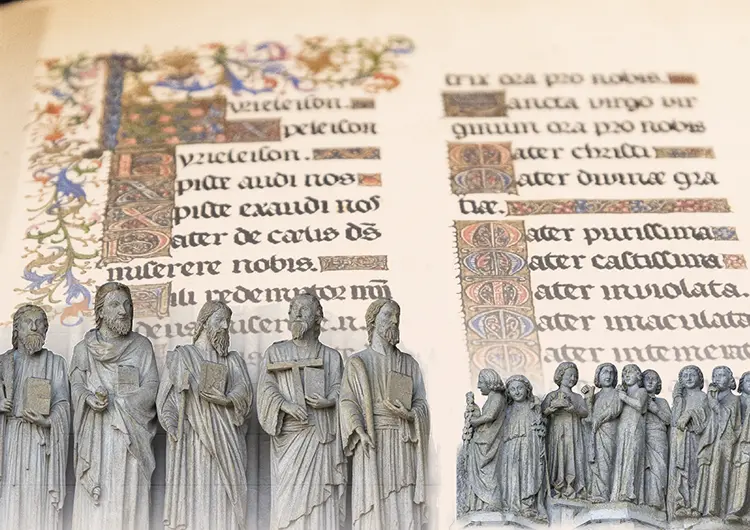 Kyrieleison.
Xpeleison
Kyrieleison.
Xpiste audi nos
Xpiste exaudi nos
Pater de cœlis ds̄
miserere nobis.
Fili redemptor
deus miserere. n.
trix ora pro nobis.
Sancta virgo vir
ginum ora pro nobis
Mater christi
Mater divinæ gra
tiæ.
Mater purissima
Mater castissima
Mater inviolata.
Mater imaculata
Mater